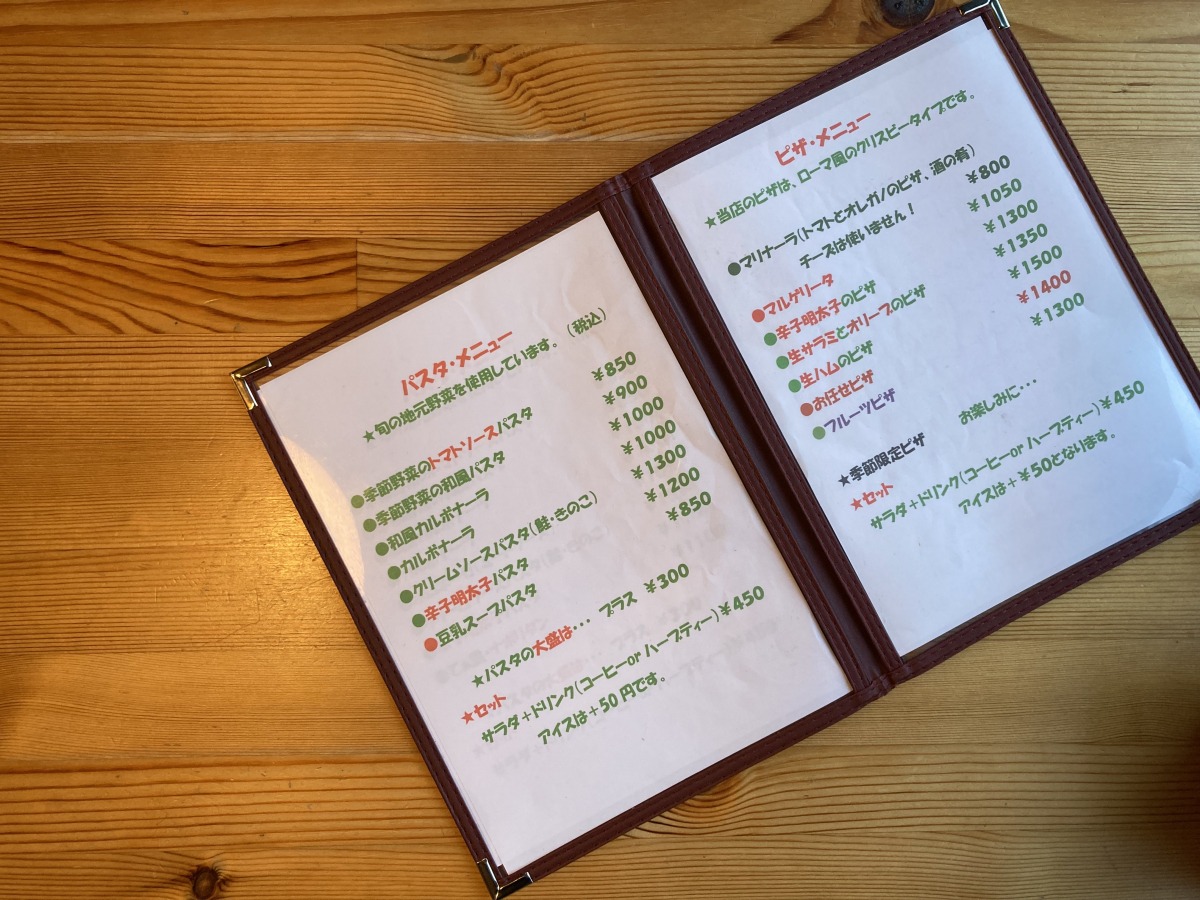 パスタ・メニュー
★旬の地元野菜を使用しています。(税込)
●季節野菜のトマトソースパスタ ¥850
●季節野菜の和風パスタ ¥900
●和風カルボナーラ ¥1000
●カルボナーラ ¥1000
●クリームソースパスタ(鮭・きのこ) ¥1300
●辛子明太子パスタ ¥1200
●豆乳スープパスタ ¥850
★パスタの大盛は・・・ プラス ¥300
★セット
サラダ+ドリンク(コーヒーor ハーブティー)¥450
アイスは+50円です。
ピザ・メニュー
★当店のピザは、ローマ風のクリスピータイプです。
●マリナーラ(トマトとオレガノのピザ、酒の肴) ¥800
チーズは使いません!
●マルゲリータ ¥1050
●辛子明太子のピザ ¥1300
●生サラミとオリーブのピザ ¥1350
●生ハムのピザ ¥1500
●お任せピザ ¥1400
●フルーツピザ ¥1300
★季節限定ピザ お楽しみに・・・
★セット
サラダ+ドリンク(コーヒーor ハーブティー)¥450
アイスは+¥50となります。